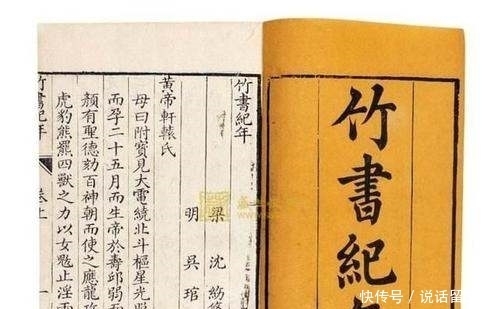 竹書紀年
竹書紀年
梁 沈約
明 吳琯
黃帝軒轅氏
母曰附寶見大電繞北斗樞星光照
而孕二十五月而生帝於壽邱弱而
顏有聖德劾百神朝而使之應龍攻
虎豹熊羆四獸之力以女魃止淫雨
竹書紀年 卷上 一
快传号/说话留